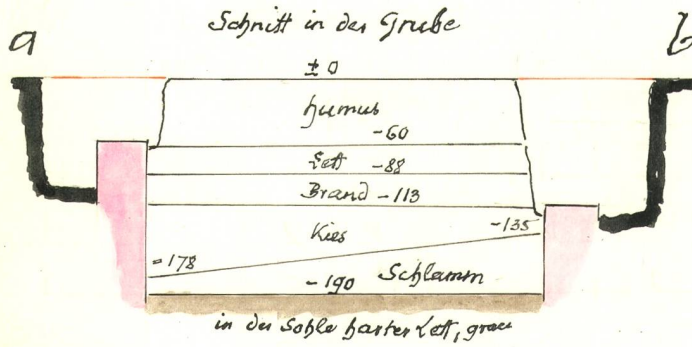 Schnitt in der Grube
a
b
± 0
Humus
-60
Lett -88
Brand -113
Kies
-135
-178
-190 Schlamm
in der Sohle harter Lett, grau